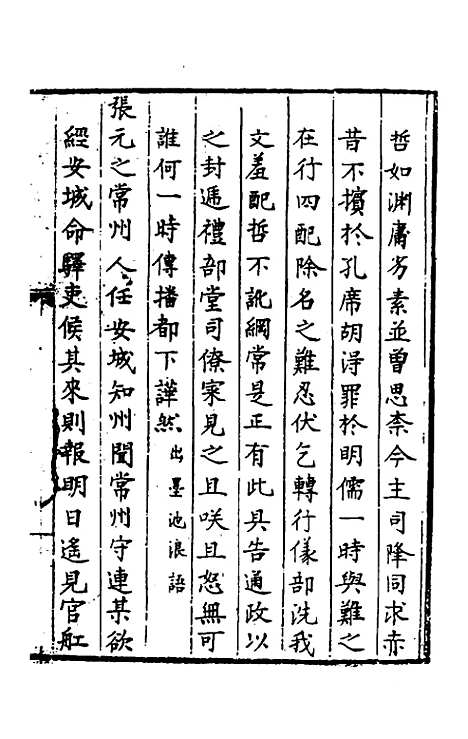 哲如淵庸芳素並曾思柰今主司降同求赤
昔不擯於孔席胡淂罪於明儒一時與難之
在行四配除名之難忍伏乞轉行儀部洗我
文羞配哲不訛綱常是正有此具告通政以
之封遞禮部堂司僚寀見之且咲且怒無可
誰何一時傳播都下譁然出墨池浪語
張元之常州人任安城知州聞常州守連某欲
經安城命驛吏候其来則報明日遙見官舡